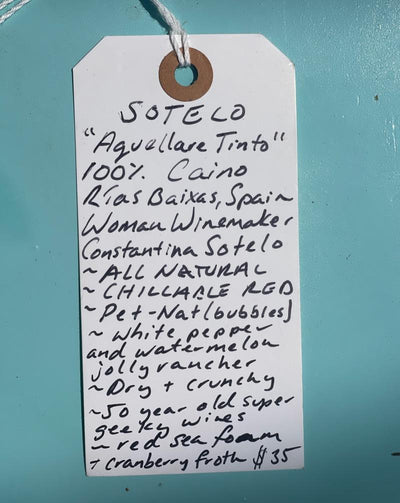 SOTELO
"Aquellare Tinto"
100% Caino
Rías Baixas, Spain
Woman Winemaker
Constantina Sotelo
~ ALL NATURAL
~ CHILLABLE RED
~ Pet-Nat (bubbles)
~ white pepper
and watermelon
jolly rancher
~ Dry + crunchy
~50 year old super
geeky wines
~ red sea foam
+ cranberry froth $35